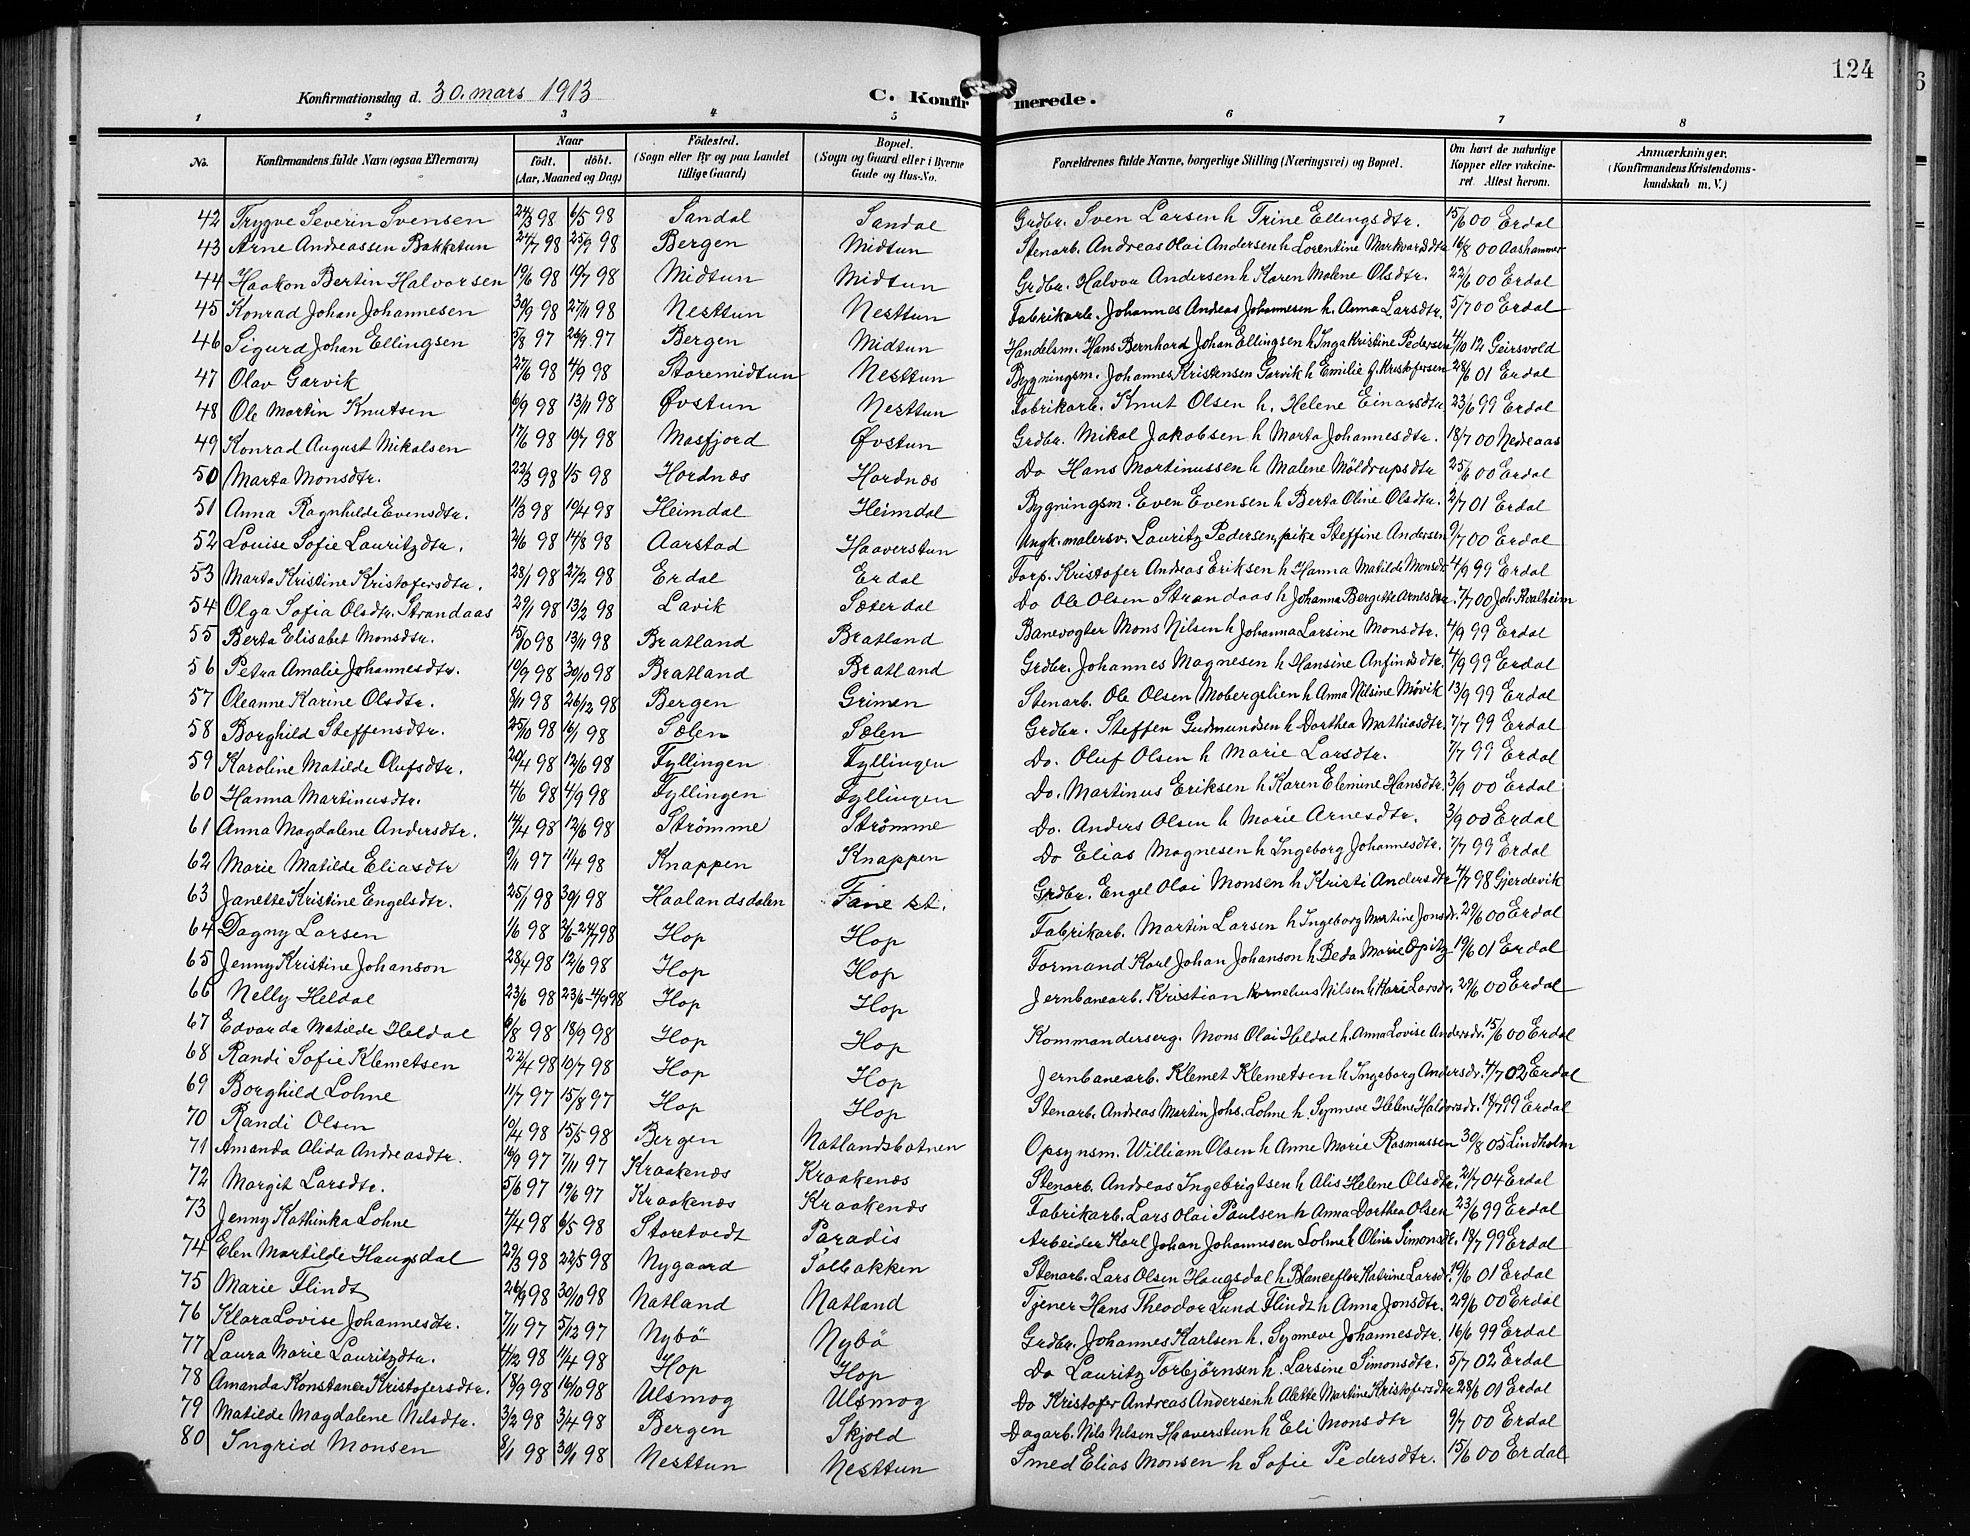 124
Konfirmationsdag d. 30. mars 1913
C. Konfirmerede.
1 2 3 4 5 6 7 8
No. Konfirmandens fulde Navn (ogsaa Efternavn) Naar födt. döbt. (Aar, Maaned og Dag) Födested. (Sogn eller By og paa Landet tillige Gaard) Bopæl. (Sogn og Gaard eller i Byerne Gade og Hus-No. Forældrenes fulde Navne, borgerlige Stilling (Næringsvei) og Bopæl. Om havt de naturlige Kopper eller vakcineret. Attest herom. Anmærkninger. (Konfirmandens Kristendomskundskab m. V.)
42 Trygve Severin Svensen 24/3 98 6/5 98 Sandal Sandal Grdbr. Sven Larsen h Trine Ellingsdtr. 15/6 00 Erdal
43 Arne Andreassen Bakketun 24/7 98 25/9 98 Bergen Midtun Stenarb. Andreas Olai Andersen h Lorentine Markvardsdtr 16/8 00 Aashammer
44 Haakon Bertin Halvorsen 19/6 98 19/7 98 Midtun Midtun Grdbr. Halvor Andersen h Karen Malene Olsdtr. 22/6 00 Erdal
45 Konrad Johan Johannesen 30/9 98 27/11 98 Nesttun Nesttun Fabrikarb. Johannes Andreas Johannesen h. Anna Larsdtr. 5/7 00 Erdal
46 Sigurd Johan Ellingsen 5/8 97 26/9 97 Bergen Midtun Handelsm. Hans Bernhard Johan Ellingsen h Inga Kristine Pedersen 4/10 12 Geirsvold
47 Olav Garvik 27/6 98 4/9 98 Storemidtun Nesttun Bygningsm. Johannes Kristensen Garvik h Emilie f. Kristofersen 28/6 01 Erdal
48 Ole Martin Knutsen 6/9 98 13/11 98 Øvstun Nesttun Fabrikarb. Knut Olsen h. Helene Einarsdtr 23/6 99 Erdal
49 Konrad August Mikalsen 17/6 98 19/7 98 Masfjord Øvstun Grdbr. Mikal Jakobsen h Marta Johannesdtr. 18/7 00 Nedreaas
50 Marta Monsdtr. 22/3 98 1/5 98 Hordnæs Hordnæs Do Hans Martinussen h Malene Möldrupsdtr 25/6 00 Erdal
51 Anna Ragnhilde Evensdtr. 11/3 98 10/4 98 Heimdal Heimdal Bygningsm. Even Evensen h Berta Oline Olsdtr. 2/7 01 Erdal
52 Louise Sofie Lauritzdtr. 2/6 98 14/8 98 Aarstad Haaverstun Ungk. malersv. Lauritz Pedersen, pike Steffine Andersen 9/7 00 Erdal
53 Marta Kristine Kristofersdtr. 28/1 98 27/2 98 Erdal Erdal Forp. Kristofer Andreas Eriksen h Hanna Matilde Monsdtr 4/9 99 Erdal
54 Olga Sofia Olsdtr. Strandaas 29/1 98 13/2 98 Lavik Sæterdal Do Ole Olsen Strandaas h Johanna Bergitte Arnesdtr. 7/7 00 Joh. Kvalheim
55 Berta Elisabet Monsdtr. 15/10 98 13/11 98 Bratland Bratland Banevogter Mons Nilsen h Johanna Larsine Monsdtr. 4/9 99 Erdal
56 Petra Amalie Johannesdtr. 10/9 98 30/10 98 Bratland Bratland Grdbr. Johannes Magnesen h Hansine Anfinsdtr. 4/9 99 Erdal
57 Oleanne Karine Olsdtr. 8/11 98 26/12 98 Bergen Grimen Stenarb. Ole Olsen Mobergslien h Anna Nilsine Møvik 13/9 99 Erdal
58 Borghild Steffensdtr. 25/10 98 16/1 98 Sælen Sælen Grdbr. Steffen Gudmundsen h Dorthea Mathiasdtr. 7/7 99 Erdal
59 Karoline Matilde Olufsdtr. 20/4 98 12/6 98 Fyllingen Fyllingen Do. Oluf Olsen h Marie Larsdtr. 7/7 99 Erdal
60 Hanna Martinusdtr. 4/6 98 4/9 98 Fyllingen Fyllingen Do. Martinus Eriksen h Karen Elemine Hansdtr. 3/9 00 Erdal
61 Anna Magdalene Andersdtr. 14/4 98 12/6 98 Strömme Strömme Do. Anders Olsen h Marie Arnesdtr. 3/9 00 Erdal
62 Marie Matilde Eliasdtr 9/11 97 11/4 98 Knappen Knappen Do Elias Magnesen h Ingeborg Johannesdtr. 7/7 99 Erdal
63 Janette Kristine Engelsdtr. 25/1 98 30/1 98 Haalandsdalen Fane st. Grdbr. Engel Olai Monsen h Kristi Andersdtr 4/7 98 Gjerdevik
64 Dagny Larsen 1/6 98 2/6-24/7 98 Hop Hop Fabrikarb. Martin Larsen h Ingeborg Martine Jonsdr. 29/6 00 Erdal
65 Jenny Kristine Johanson 28/4 98 12/6 98 Hop Hop Formand Karl Johan Johanson h Beda Marie Opitz 19/6 01 Erdal
66 Nelly Heldal 23/6 98 23/6-4/9 98 Hop Hop Jernbanearb. Kristian Kornelius Nilsen h Kari Larsdr. 29/6 00 Erdal
67 Edvarda Matilde Heldal 6/8 98 18/9 98 Hop Hop Kommanderserg. Mons Olai Heldal h. Anna Lovise Andersdr. 15/6 00 Erdal
68 Randi Sofie Klemetsen 22/4 98 10/7 98 Hop Hop Jernbanearb. Klemet Klemetsen h Ingeborg Andersdr. 4/7 02 Erdal
69 Borghild Lohne 11/7 97 15/8 97 Hop Hop Stenarb. Andreas Martin Johs. Lohne h Synneve Helene Haldorsdr. 18/7 99 Erdal
70 Randi Olsen 10/4 98 15/5 98 Bergen Natlandsbotnen Opsynsm. William Olsen h Anne Marie Rasmussen 30/8 05 Lindholm
71 Amanda Alida Andreasdtr. 16/9 97 7/11 97 Kraakenæs Kraakenæs Stenarb. Andreas Ingebrigtsen h Alis Helene Olsdtr. 21/7 04 Erdal
72 Margit Larsdtr. 5/6 97 19/6 97 Kraakenæs Kraakenæs Fabrikarb. Lars Olai Paulsen h Anna Dorthea Olsen 23/6 99 Erdal
73 Jenny Kathinka Lohne 4/4 98 6/5 98 Storetvedt Paradis Arbeider Karl Johan Johannesen Lohne h Oline Simonsdt. 18/7 99 Erdal
74 Elen Martilde Haugsdal 29/3 98 22/5 98 Nygaard Solbakken Stenarb. Lars Olsen Haugsdal h Blanceflor Katrine Larsdr. 19/6 01 Erdal
75 Marie Flindt 26/9 98 30/10 98 Natland Natland Tjener Hans Theodor Lund Flindt h Anna Jonsdtr. 29/6 00 Erdal
76 Klara Lovise Johannesdtr. 7/11 97 5/12 97 Nybö Nybö Grdbr. Johannes Karlsen h. Synneve Johannesdtr. 16/6 99 Erdal
77 Laura Marie Lauritzdtr. 4/12 98 11/4 98 Hop Hop Do Lauritz Torbjørnsen h. Larsine Simonsdtr. 5/7 02 Erdal
78 Amanda Konstance Kristofersdtr. 18/9 98 16/10 98 Ulsmog Ulsmog Do Kristofer Andreas Andersen h Alette Martine Kristofersdtr 28/6 01 Erdal
79 Matilde Magdalene Nilsdtr. 3/2 98 3/4 98 Bergen Skjold Dagarb. Nils Nilsen Haaverstun h Eli Monsdtr 9/7 00 Erdal
80 Ingrid Monsen 8/1 98 30/1 98 Nesttun Nesttun Smed Elias Monsen h Sofie Pedersdtr. 15/6 00 Erdal